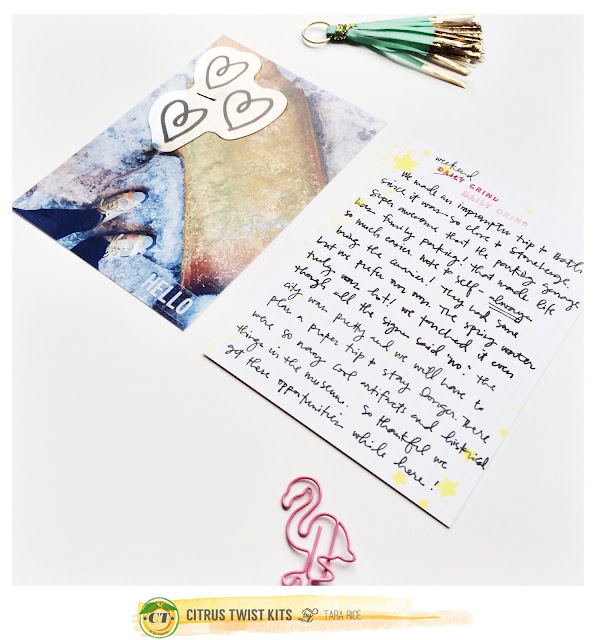 HELLO
weekend
DAILY GRIND
DAILY GRIND
We made an impromptu trip to Bath
since it was so close to Stonehenge.
Super awesome that the parking garage
has family parking! that made life
so much easier. note to self - always
bring the carrier! They had some
but we prefer our own. The spring water
truly was hot! we touched it even
though all the signs said "no." the
city was pretty and we will have to
plan a proper trip + stay longer. There
were so many cool artifacts and historical
things in the museum. So thankful we
get these opportunities while here!
CT
CITRUS TWIST KITS by TARA RICE